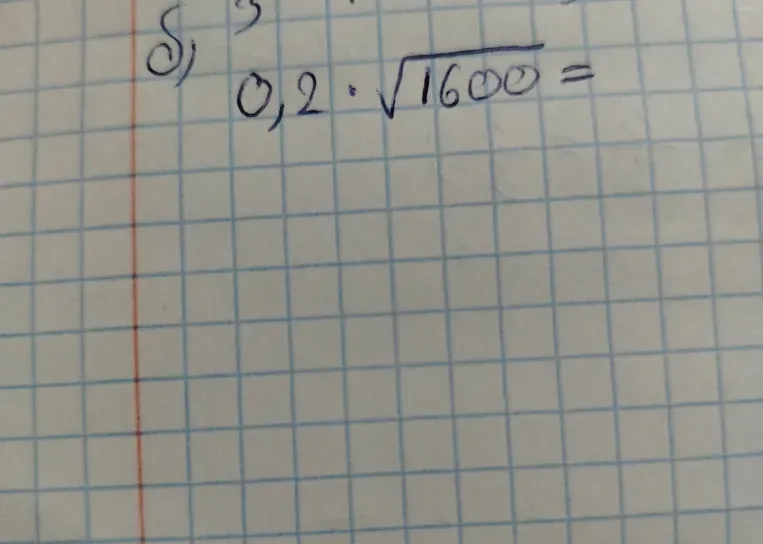 б,
0,2 · √1600 =